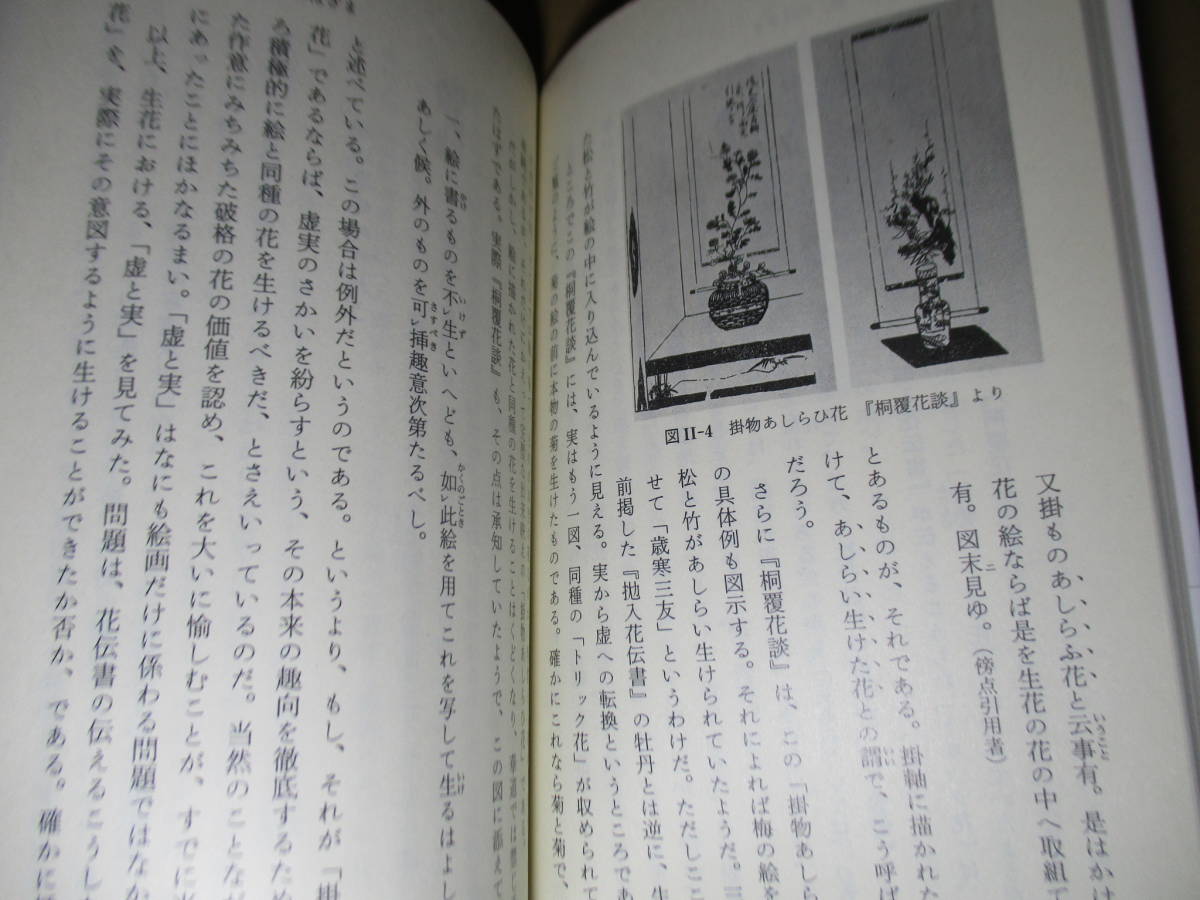 又掛ものあしらふ花と云事有。是はかけ
いうこと
花の絵ならば是を生花の花の中へ取組て
有。図末ニ見ゆ。（傍点引用者）
とあるものが、それである。掛軸に描かれた
けて、あしらい生けた花との謂で、こう呼ば
いい
だろう。
さらに『桐覆花談』は、この「掛物あしら
の具体例も図示する。それによれば梅の絵を
松と竹があしらい生けられていたようだ。三
せて「歳寒三友」というわけだ。ただしここ
前掲した『抛入花伝書』の牡丹とは逆に、生
図II-4 掛物あしらひ花 『桐覆花談』より
た松と竹が絵の中に入り込んでいるように見える。実から虚への転換というところであ
ところでこの『桐覆花談』には、実はもう一図、同種の「トリック花」が収められて
のように、菊の絵の前に本物の菊を生けたものである。確かにこれなら菊と菊で、
しかし、絵に描かれた花と同種の花を生けることはくどくなり、
たはずである。実際『桐覆花談』も、その点は承知していたようで、この図に添えて
一、絵に書るものを不レ生といへども、如レ此絵を用てこれを写して生るはよし
かけ いけず かくのごとき いけ
あしく候。外のものを可レ挿趣意次第たるべし。
さすべき
と述べている。この場合は例外だというのである。というより、もし、それが「掛
花」であるならば、虚実のさかいを紛らすという、その本来の趣向を徹底するため
ろ積極的に絵と同種の花を生けるべきだ、とさえいっているのだ。当然のことなが
た作意にみちみちた破格の花の価値を認め、これを大いに愉しむことが、すでに当
にあったことにほかなるまい。「虚と実」はなにも絵画だけに係わる問題ではなか
以上、生花における、「虚と実」を見てみた。問題は、花伝書の伝えるこうした
花」を、実際にその意図するように生けることができたか否か、である。確かに